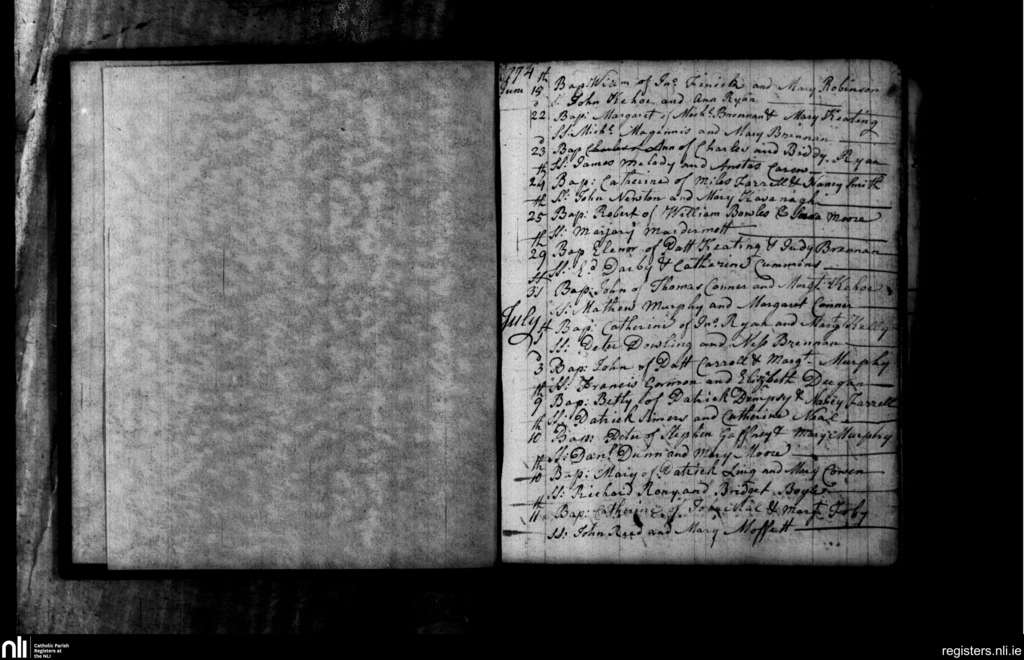 1774
June 15th Bap: Willm of Jno. Finiele and Mary Robinson
Ss: John Kehoe and Ann Ryan
22d Bap: Margaret of Michl. Brennan & Mary Keating
Ss: Michl. Magennis and Mary Brennan
23d Bap Ann of Charles and Biddy Ryan
Ss: James Melody and Carew
24th Bap: Catherine of Miles Farrell & Nancy Smith
Ss: John Newton and Mary Kavanagh
25th Bap: Robert of William Bowles & Moore
Ss: Marjary Mardermott
29th Bap Elenor of Patt Keating & Judy Brennan
Ss: Ed Darby & Catherine Cummins
31st Bap: John of Thomas Conner and Margt. Kehoe
Ss: Mathew Murphy and Margaret Conner
July 1st Bap: Catherine of Jno. Ryan and Mary Kelly
Ss: Peter Dowling and Ness Brennan
3d Bap: John of Patt Carroll & Margt. Murphy
Ss: Francis Gorman and Elizbeth Deegan
9th Bap: Betty of Patrick Dempsy & Nancy Farrell
Ss: Patrick and Catherine Neal
10th Bap: Peter of Stephen Gaffney & Mary Murphy
Ss: Danl. Dunn and Mary Moore
10th Bap: Mary of Patrick Ling and Mary Cowen
Ss: Richard Rony and Bridget Boyle
11th Bap: Catherine of & Margt. Foby
Ss: John Reed and Mary Moffett
nli
Catholic Parish
Registers at
the NLI
registers.nli.ie